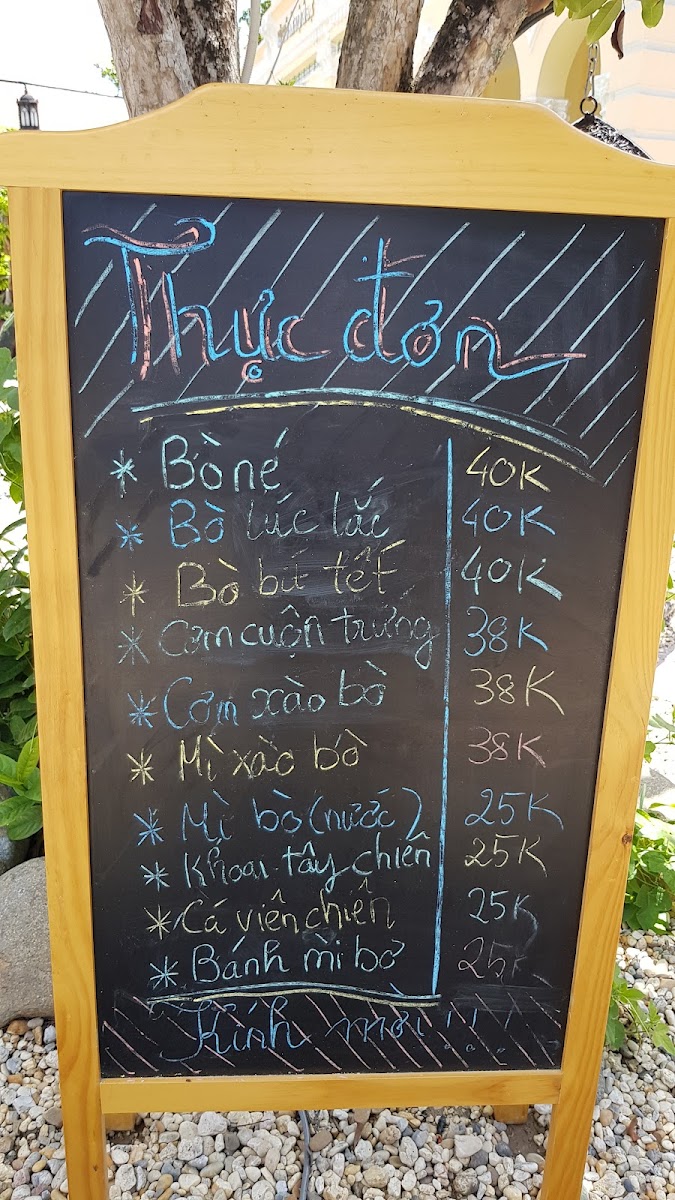 Thực đơn
* Bò né 40K
* Bò lúc lắc 40K
* Bò bít tết 40K
* Cơm cuộn trứng 38K
* Cơm xào bò 38K
* Mì xào bò 38K
* Mì bò (nước) 25K
* Khoai tây chiên 25K
* Cá viên chiên 25K
* Bánh mì bơ 25K
Kính mời!!!